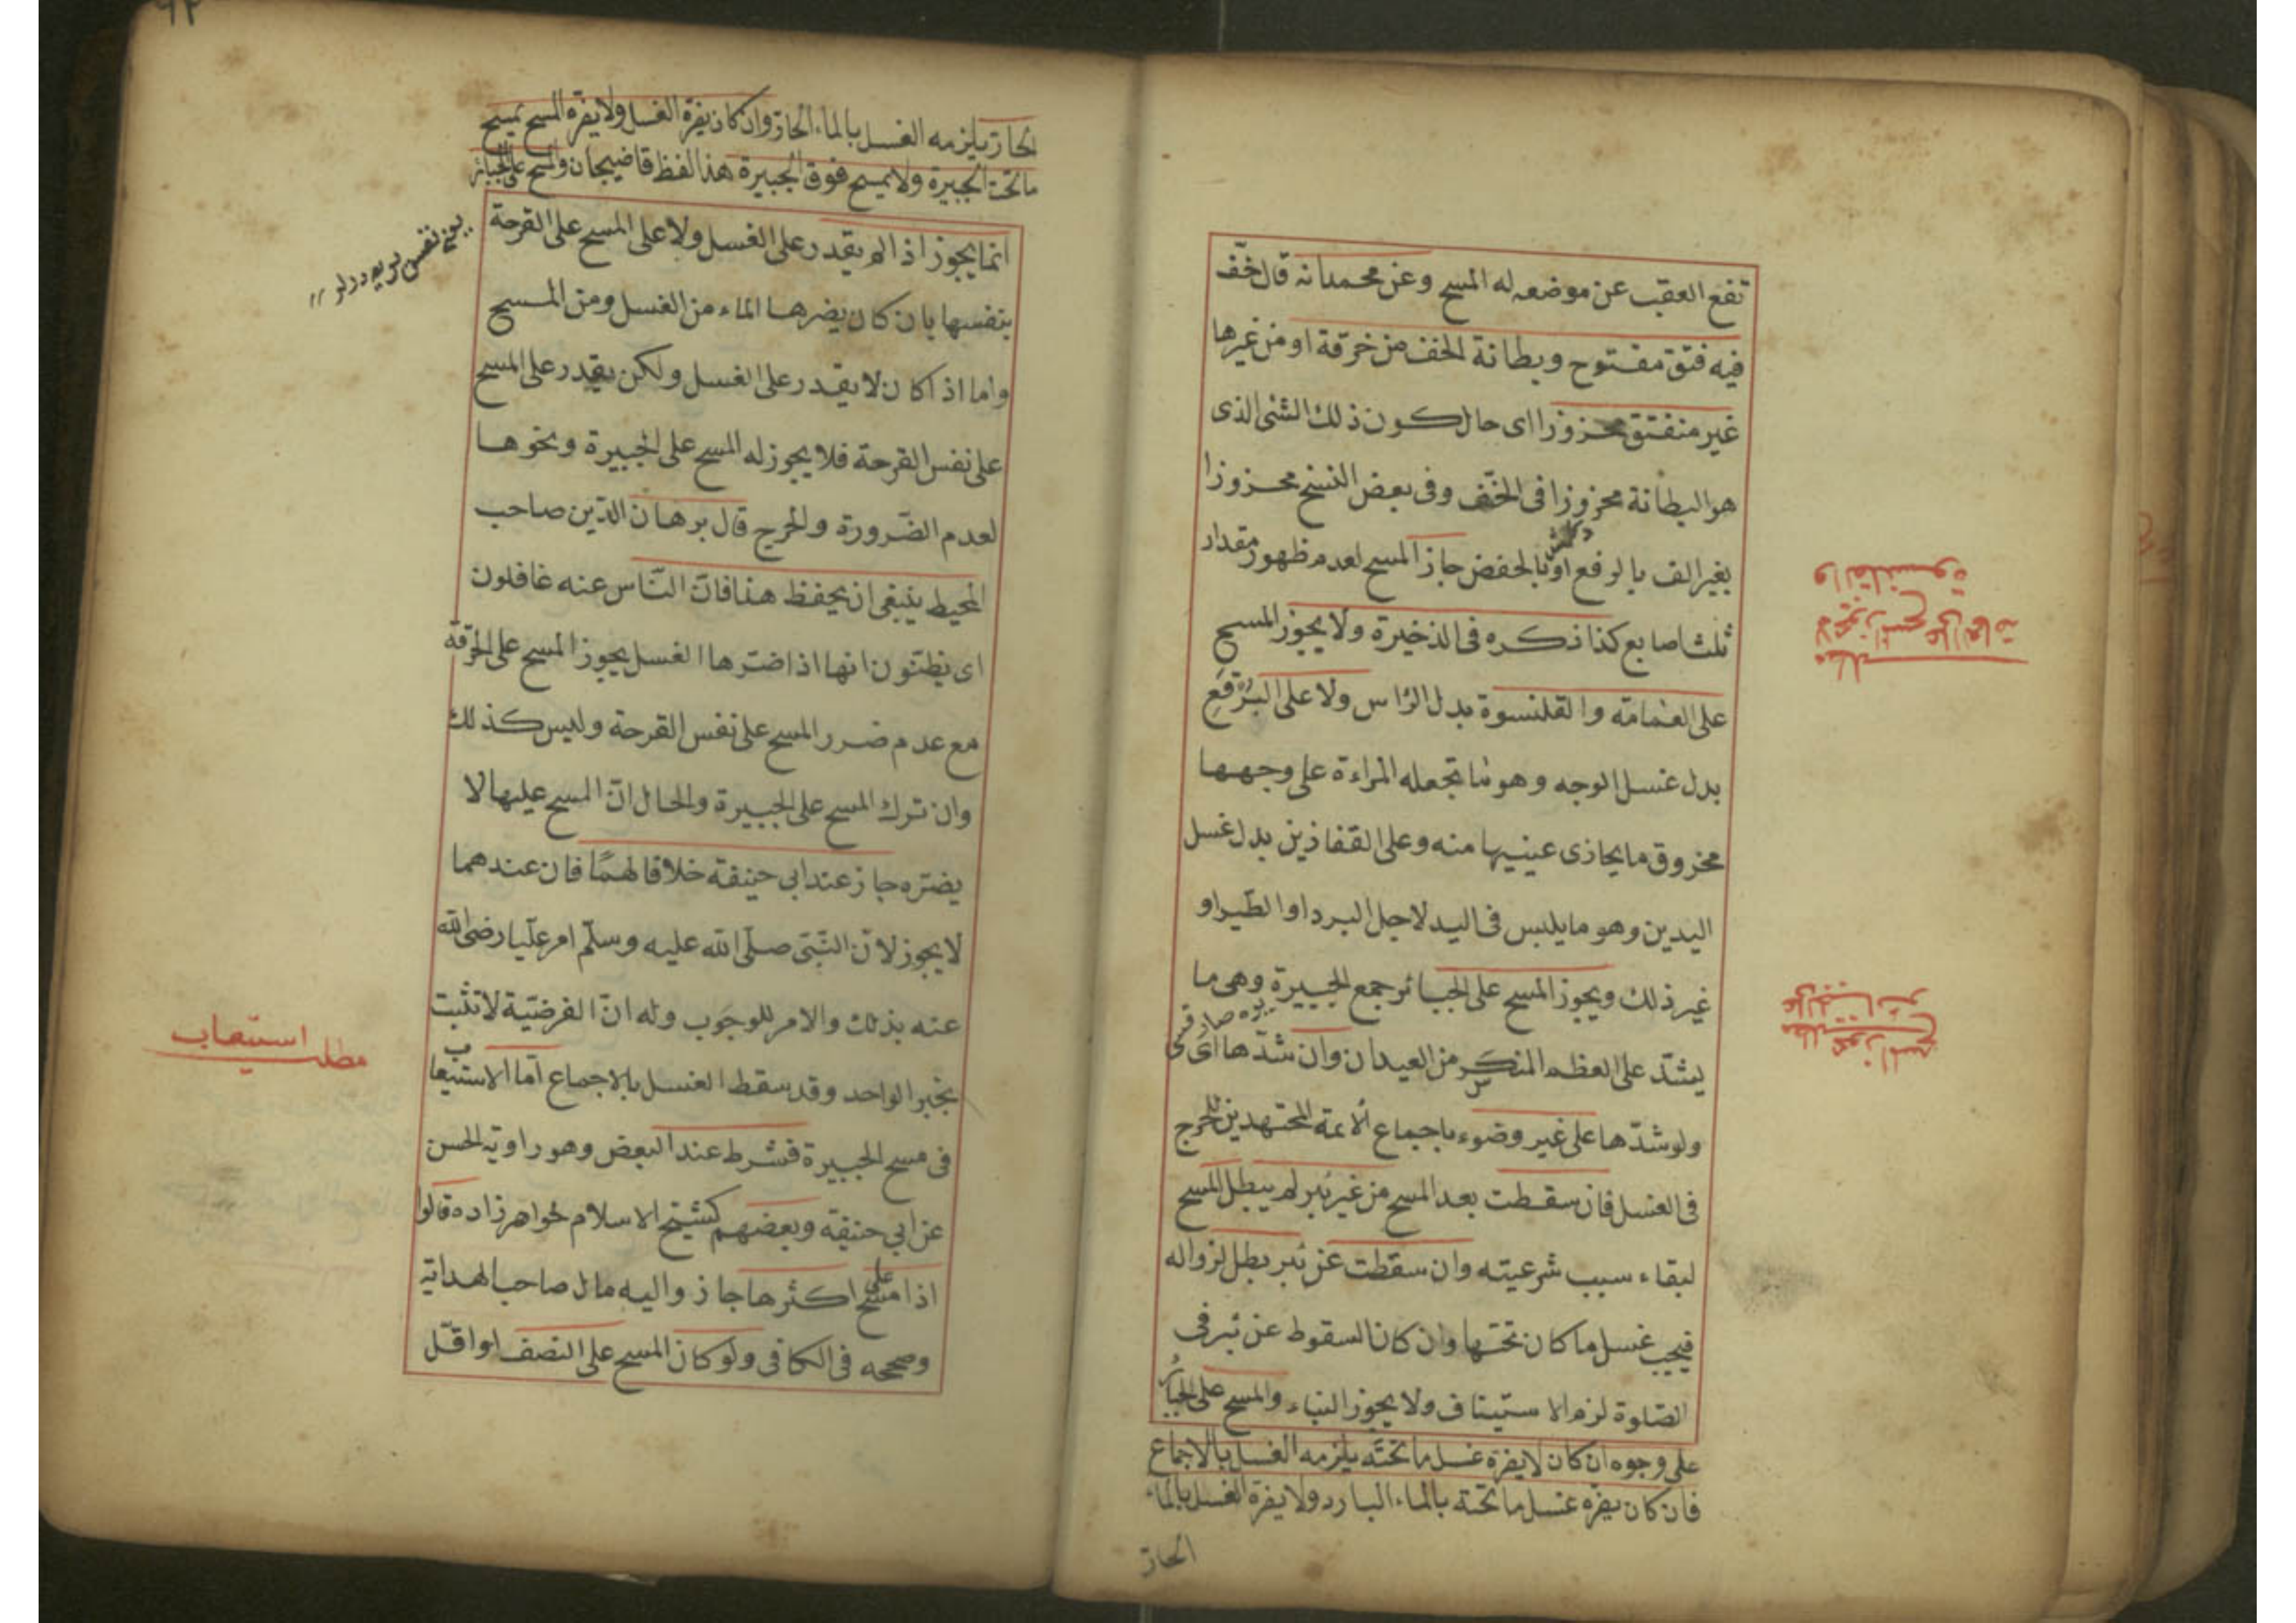 تفع العقب عن موضعه له المسح وعن محمد انه قال خفّ
فيه فتق مفتوح وبطانة الخف من خرقة او من غيرها
غير منفتق محزوزا اى حال كون ذلك الشئ الذى
هو البطانة محزوزا فى الخفّ وفى بعض النسخ محزوزا
بغير الف بالرفع او بالخفض جاز المسح لعدم ظهور مقدار
ثلث اصابع كذا ذكره فى الذخيرة ولا يجوز المسح
على العمامة والقلنسوة بدل الرأس ولا على البرقع
بدل غسل الوجه وهو ما تجعله المراءة على وجهها
مخروق ما يحاذى عينيها منه وعلى القفازين بدل غسل
اليدين وهو ما يلبس فى اليد لاجل البرد او الطير او
غير ذلك ويجوز المسح على الجبائر جمع الجبيرة وهى ما
يشدّ على العظم المنكسر من العيدان وان شدّها اى
ولو شدّها على غير وضوء باجماع الائمة المجتهدين للحرج
فى الغسل فان سقطت بعد المسح من غير برء لم يبطل المسح
لبقاء سبب شرعيته وان سقطت عن برء بطل لزواله
فيجب غسل ما كان تحتها وان كان السقوط عن برء فى
الصّلوة لزم الاستيناف ولا يجوز البناء والمسح على الجبائر
على وجوه ان كان لا يضره غسل ما تحته يلزمه الغسل بالاجماع
فان كان يضره غسل ما تحته بالماء البارد ولا يضره الغسل بالماء
الحارّ
مطلب
لا يجوز المسح على العمامة
والقلنسوة
مطلب يجوز المسح
على الجبائر
٩٢
الحارّ يلزمه الغسل بالماء الحارّ وان كان يضره الغسل ولا يضره المسح يمسح
ما تحت الجبيرة ولا يمسح فوق الجبيرة هذا لفظ قاضيخان والمسح على الجبائر
انما يجوز اذا لم يقدر على الغسل ولا على المسح على القرحة
بنفسها بان كان يضرها الماء من الغسل ومن المسح
واما اذا كان لا يقدر على الغسل ولكن يقدر على المسح
على نفس القرحة فلا يجوز له المسح على الجبيرة ونحوها
لعدم الضّرورة والحرج قال برهان الدّين صاحب
المحيط ينبغى ان يحفظ هذا فانّ النّاس عنه غافلون
اى يظنّون انها اذا ضرّها الغسل يجوز المسح على الخرقة
مع عدم ضرر المسح على نفس القرحة وليس كذلك
وان ترك المسح على الجبيرة والحال انّ المسح عليها لا
يضرّه جاز عند ابى حنيفة خلافا لهما فان عندهما
لا يجوز لانّ النّبىّ صلّى الله عليه وسلّم امر عليّا رضى الله
عنه بذلك والامر للوجوب وله انّ الفرضيّة لا تثبت
بخبر الواحد وقد سقط الغسل بالاجماع امّا الاستيعاب
فى مسح الجبيرة فشرط عند البعض وهو راوية الحسن
عن ابى حنيفة وبعضهم كشيخ الاسلام خواهرزاده قالوا
اذا مسح على اكثرها جاز واليه مال صاحب الهداية
وصححه فى الكافى ولو كان المسح على النصف او اقلّ
مطلب استيعاب